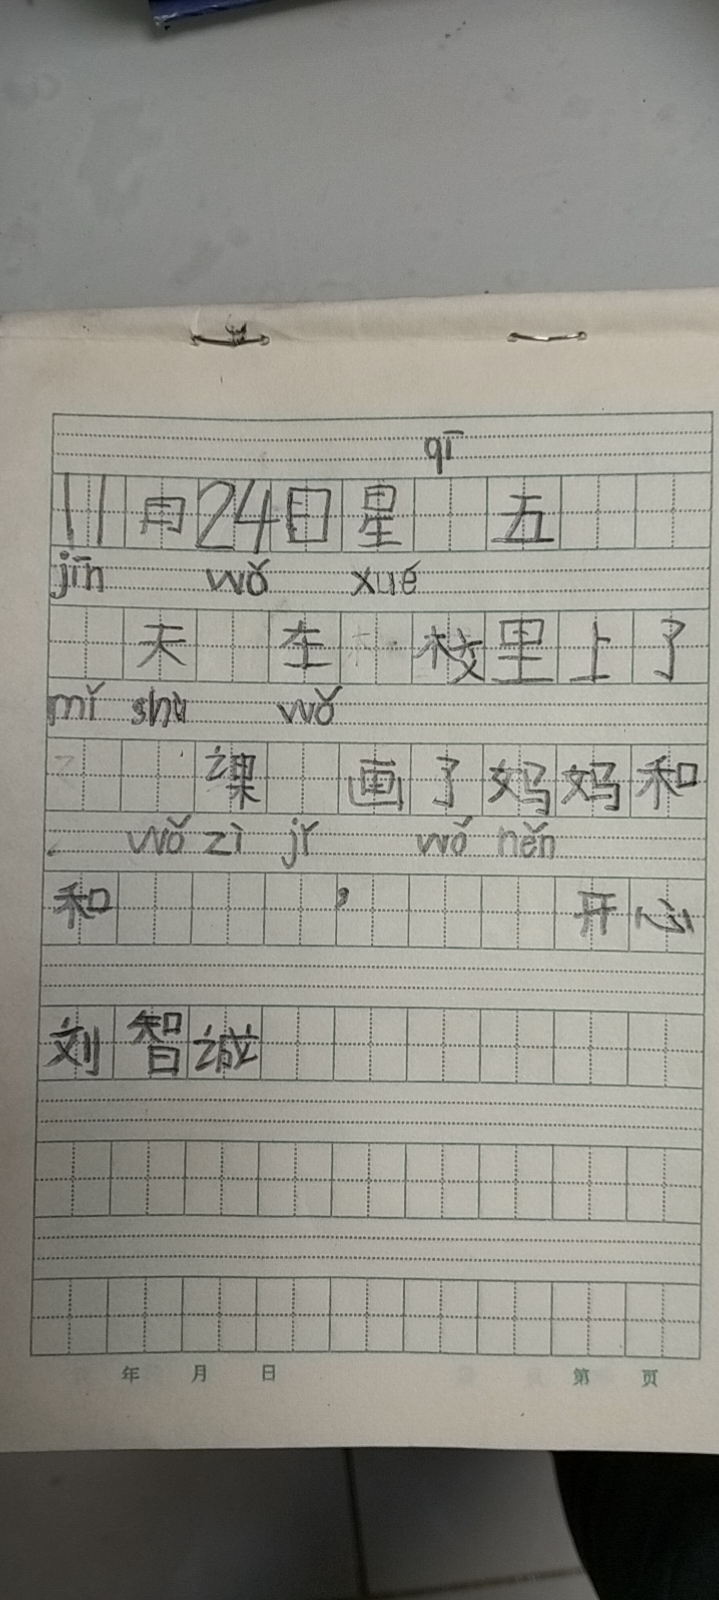 qī
11月24日星 五
jīn wǒ xué
天 在 校里上了
mǐ shù wǒ
课 画了妈妈和
wǒ zì jǐ wǒ hěn
和 , 开心
刘智诚
年 月 日 第 页